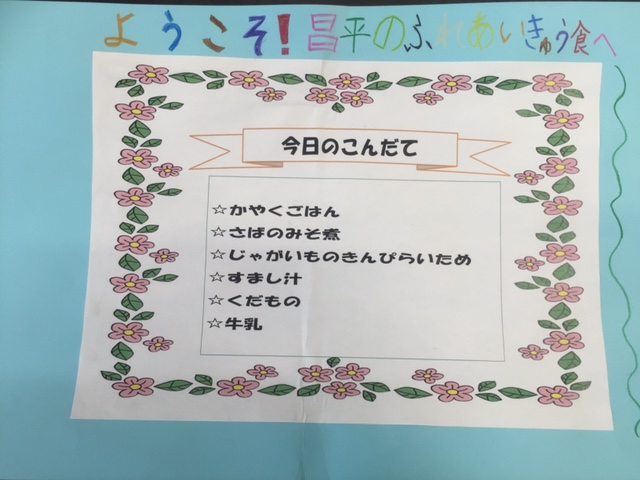 ようこそ!昌平のふれあいきゅう食へ
今日のこんだて
☆かやくごはん
☆さばのみそ煮
☆じゃがいものきんぴらいため
☆すまし汁
☆くだもの
☆牛乳